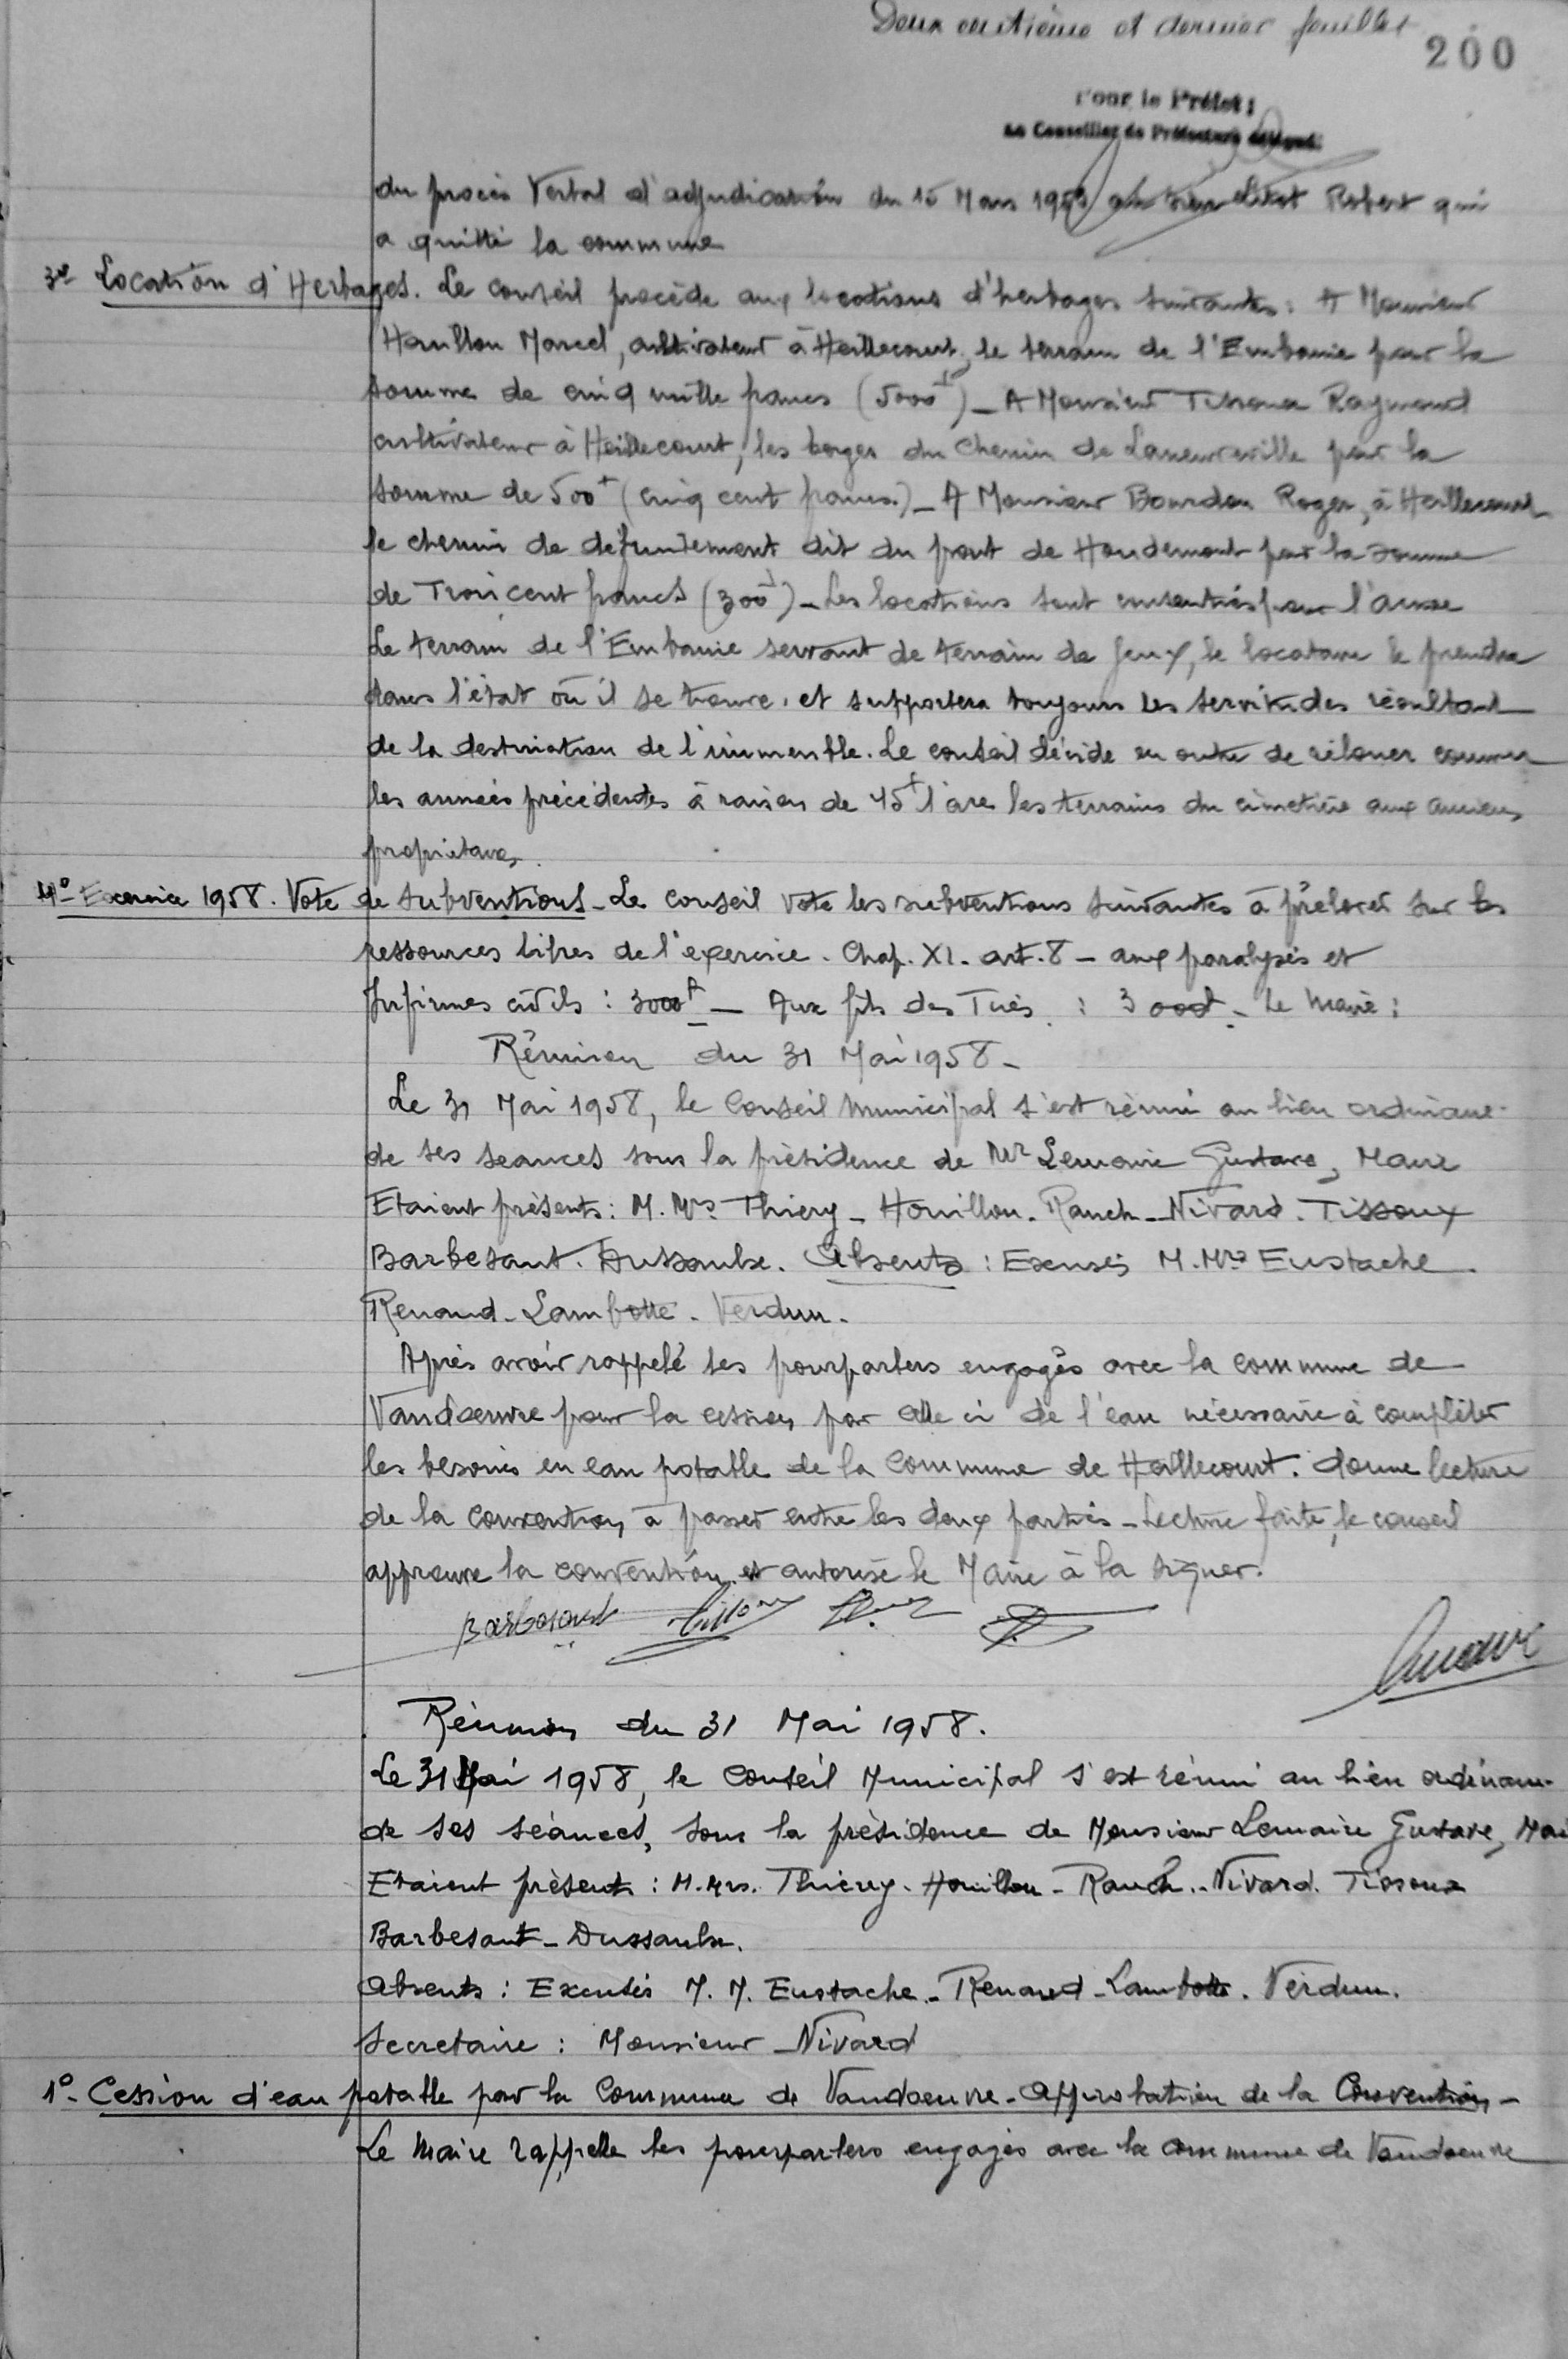 Deux centième et dernier feuillet
200
Pour le Préfet :
Le Conseiller de Préfecture délégué.
du procès Verbal d'adjudication du 15 Mars 195 Robert qui
a quitté la commune
3º Location d'Herbages. Le conseil procède aux locations d'herbages suivantes : A Monsieur
Houillon Marcel, cultivateur à Heillecourt, le terrain de l'Embanie pour la
somme de cinq mille francs (5000f) _ A Monsieur Tissoux Raymond
cultivateur à Heillecourt, les berges du Chemin de Laneuveville pour la
somme de 500f (cinq cent francs.) _ A Monsieur Bourdon Roger, à Heillecourt
le chemin de défruitement dit du pont de Houdemont pour la somme
de Trois cent francs (300f) _ Les locations sont consenties pour l'année
Le terrain de l'Embanie servant de terrain de jeux, le locataire le prendra
dans l'état où il se trouve, et supportera toujours les servitudes résultant
de la destination de l'immeuble. Le conseil décide en outre de rélouer comme
les années précédentes à raison de 15f l'are les terrains du cimetière aux anciens
propriétaires.
4º- Exercice 1958. Vote de subventions _ Le conseil vote les subventions suivantes à prélever sur les
ressources libres de l'exercice. Chap. XI. art. 8 _ aux paralysés et
Infirmes civils : 3000f _ Aux fils des Tués : 3000f _ Le Maire :
Réunion du 31 Mai 1958 _
Le 31 Mai 1958, le Conseil Municipal s'est réuni au lieu ordinaire
de ses séances sous la présidence de Mr Lemaire Gustave, Maire
Etaient présents : M. Mrs Thiery _ Houillon _ Rauch _ Nivard. Tissoux
Barbesant. Dussaulx. Absents : Excusés M. Mrs Eustache
Renaud _ Lambotte. Verdun.
Après avoir rappelé les pourparlers engagés avec la commune de
Vandoeuvre pour la cession par elle ci de l'eau nécessaire à compléter
les besoins en eau potable de la Commune de Heillecourt. donne lecture
de la convention à passer entre les deux parties _ Lecture faite, le conseil
approuve la convention et autorise le Maire à la signer.
Barbesant Tissoux
Lemaire
Réunion du 31 Mai 1958.
Le 31 Mai 1958, le Conseil Municipal s'est réuni au lieu ordinaire
de ses séances, sous la présidence de Monsieur Lemaire Gustave, Mai
Etaient présents : M. Mrs. Thiery. Houillon _ Rauch. _ Nivard. Tissoux
Barbesant _ Dussaulx.
Absents : Excusés M. M. Eustache _ Renaud _ Lambotte. Verdun.
Secretaire : Monsieur Nivard
1º- Cession d'eau potable par la Commune de Vandoeuvre _ Approbation de la Convention _
Le Maire rappelle les pourparlers engagés avec la commune de Vandoeuvre